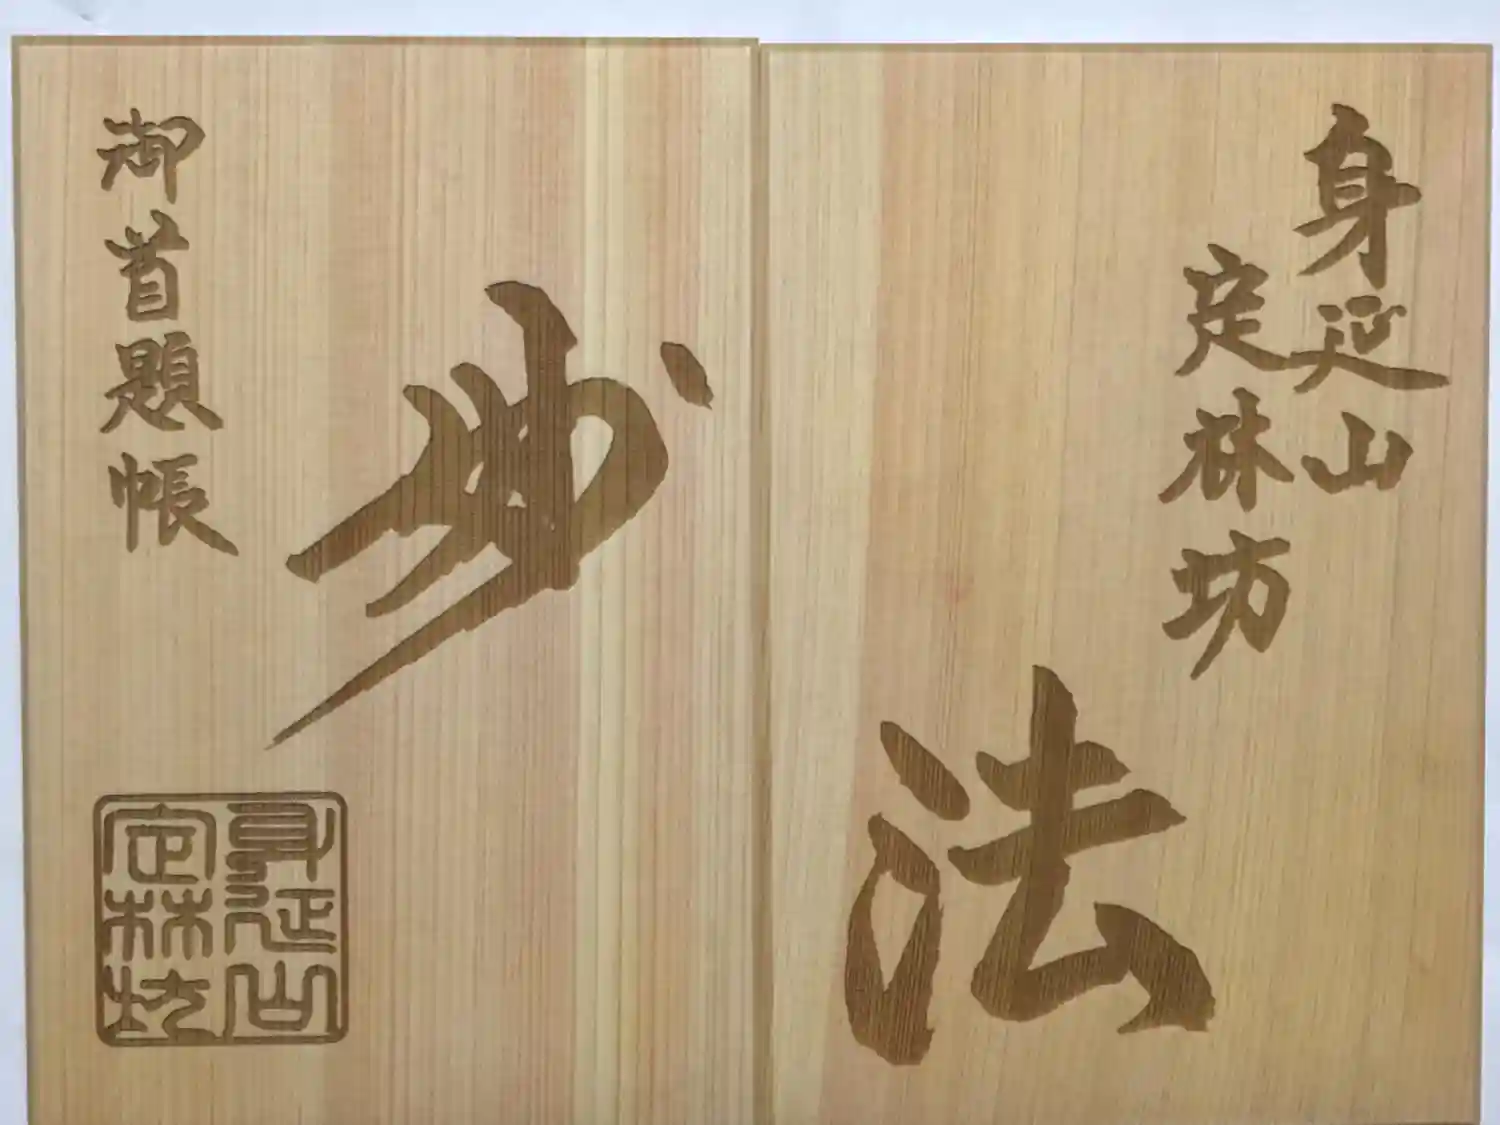 御首題帳
妙
身延山
定林坊
身延山
定林坊
法